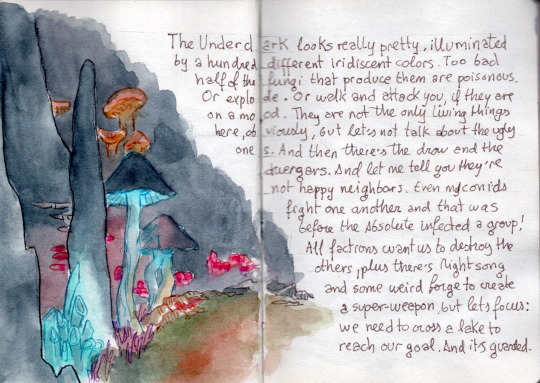 The Underdark looks really pretty, illuminated
by a hundred different iridiscent colors. Too bad
half of the fungi that produce them are poisonous.
Or explode. Or walk and attack you, if they are
on a mood. They are not the only living things
here, obviously, but let's not talk about the ugly
ones. And then there's the drow and the
duergars. And let me tell you they're
not happy neighbors. Even myconids
fight one another and that was
before the Absolute infected a group!
All factions want us to destroy the
others, plus there's Nightsong
and some weird forge to create
a super-weapon, but let's focus:
we need to cross a lake to
reach our goal. And it's guarded.